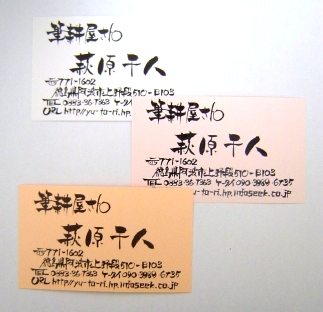 筆耕屋さん
萩原千人
〒771-1602
徳島県阿波市上野段510-B103
TEL 0883-36-7363 ケータイ
URL http://yu-to-ri.hp.
筆耕屋さん
萩原千人
〒771-1602
徳島県阿波市上野段510-B103
TEL 0883-36-7363 ケータイ 090-3989-6735
yu-to-ri.hp.infoseek.co.jp
筆耕屋さん
萩原千人
〒771-1602
徳島県阿波市上野段510-B103
TEL 0883-36-7363 ケータイ 090-3989-6735
URL http://yu-to-ri.hp.infoseek.co.jp